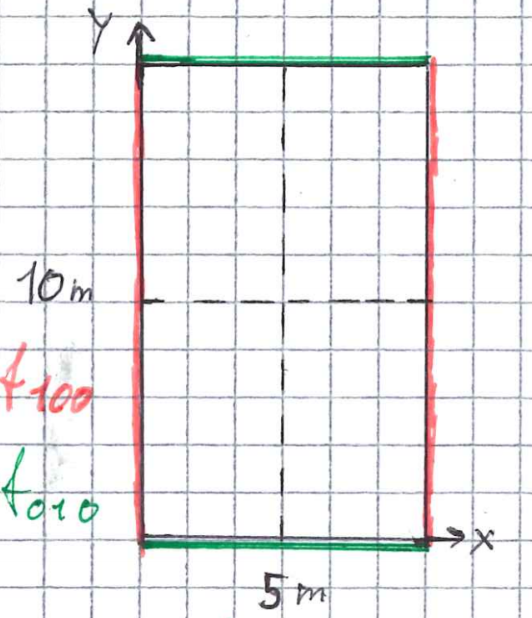 Y
10m
f100
f010
X
5m